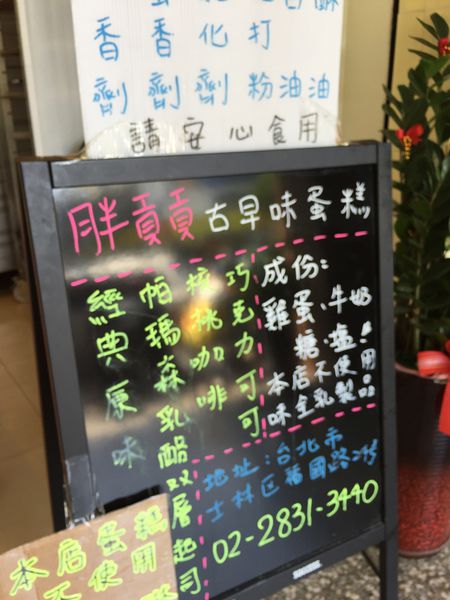 香香化打
劑劑劑粉油油
請安心食用
胖貢貢古早味蛋糕
巧克力可可
核桃咖啡
帕瑪森乳酪双層起司
經典原味
成份:
雞蛋、牛奶
糖、塩!
本店不使用
味全乳製品
地址:台北市
士林區福國路25
02-2831-3440
本店蛋糕
不使用